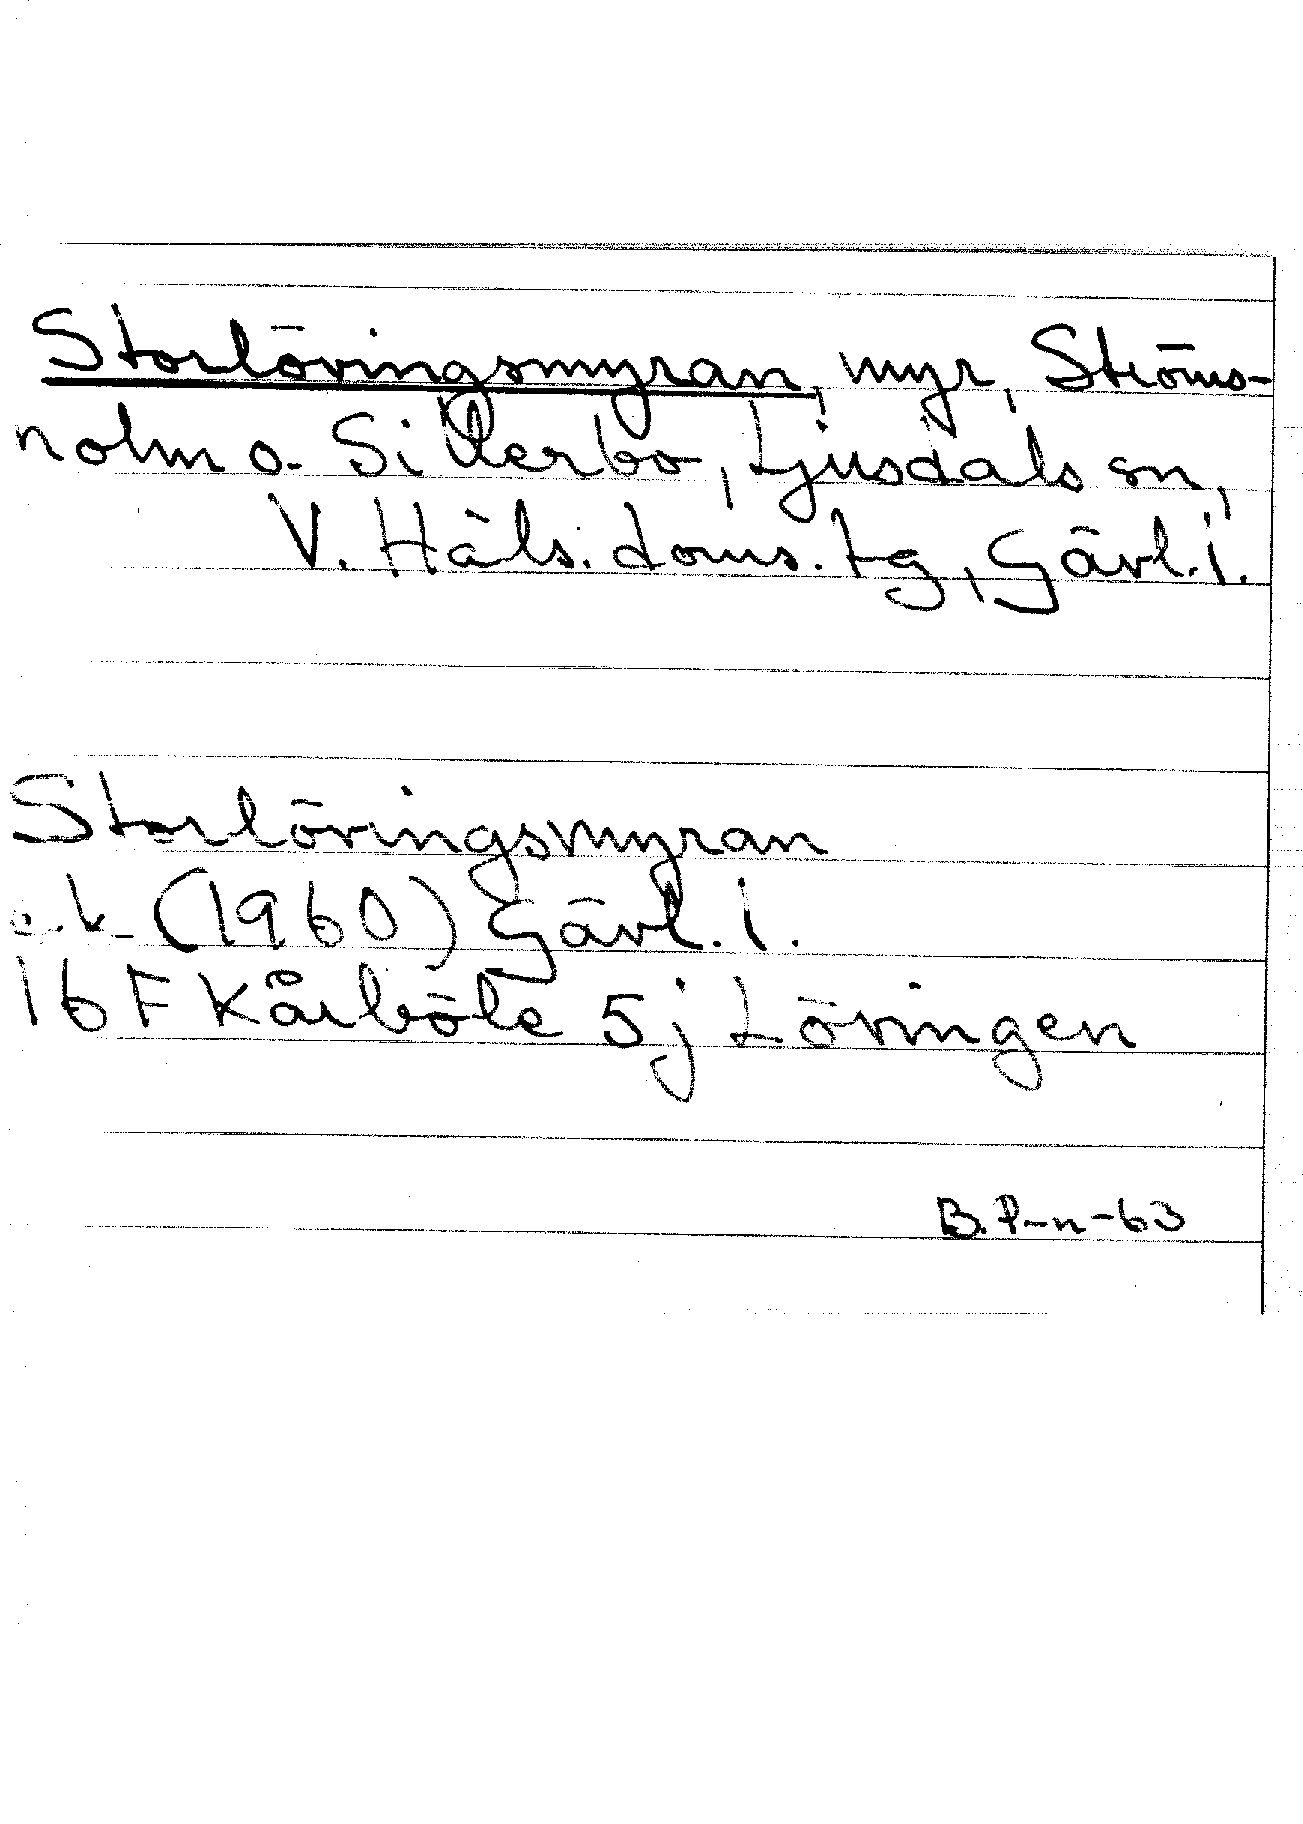 Storlöringsmyran, myr, Ströms-
holm o. Sillerbo, Ljusdals sn,
V. Häls. doms. tg, Gävl. l.
Storlöringsmyran
e.k. (1960) Gävl. l.
16 F Kårböle 5j Löringen
B. P-n-63